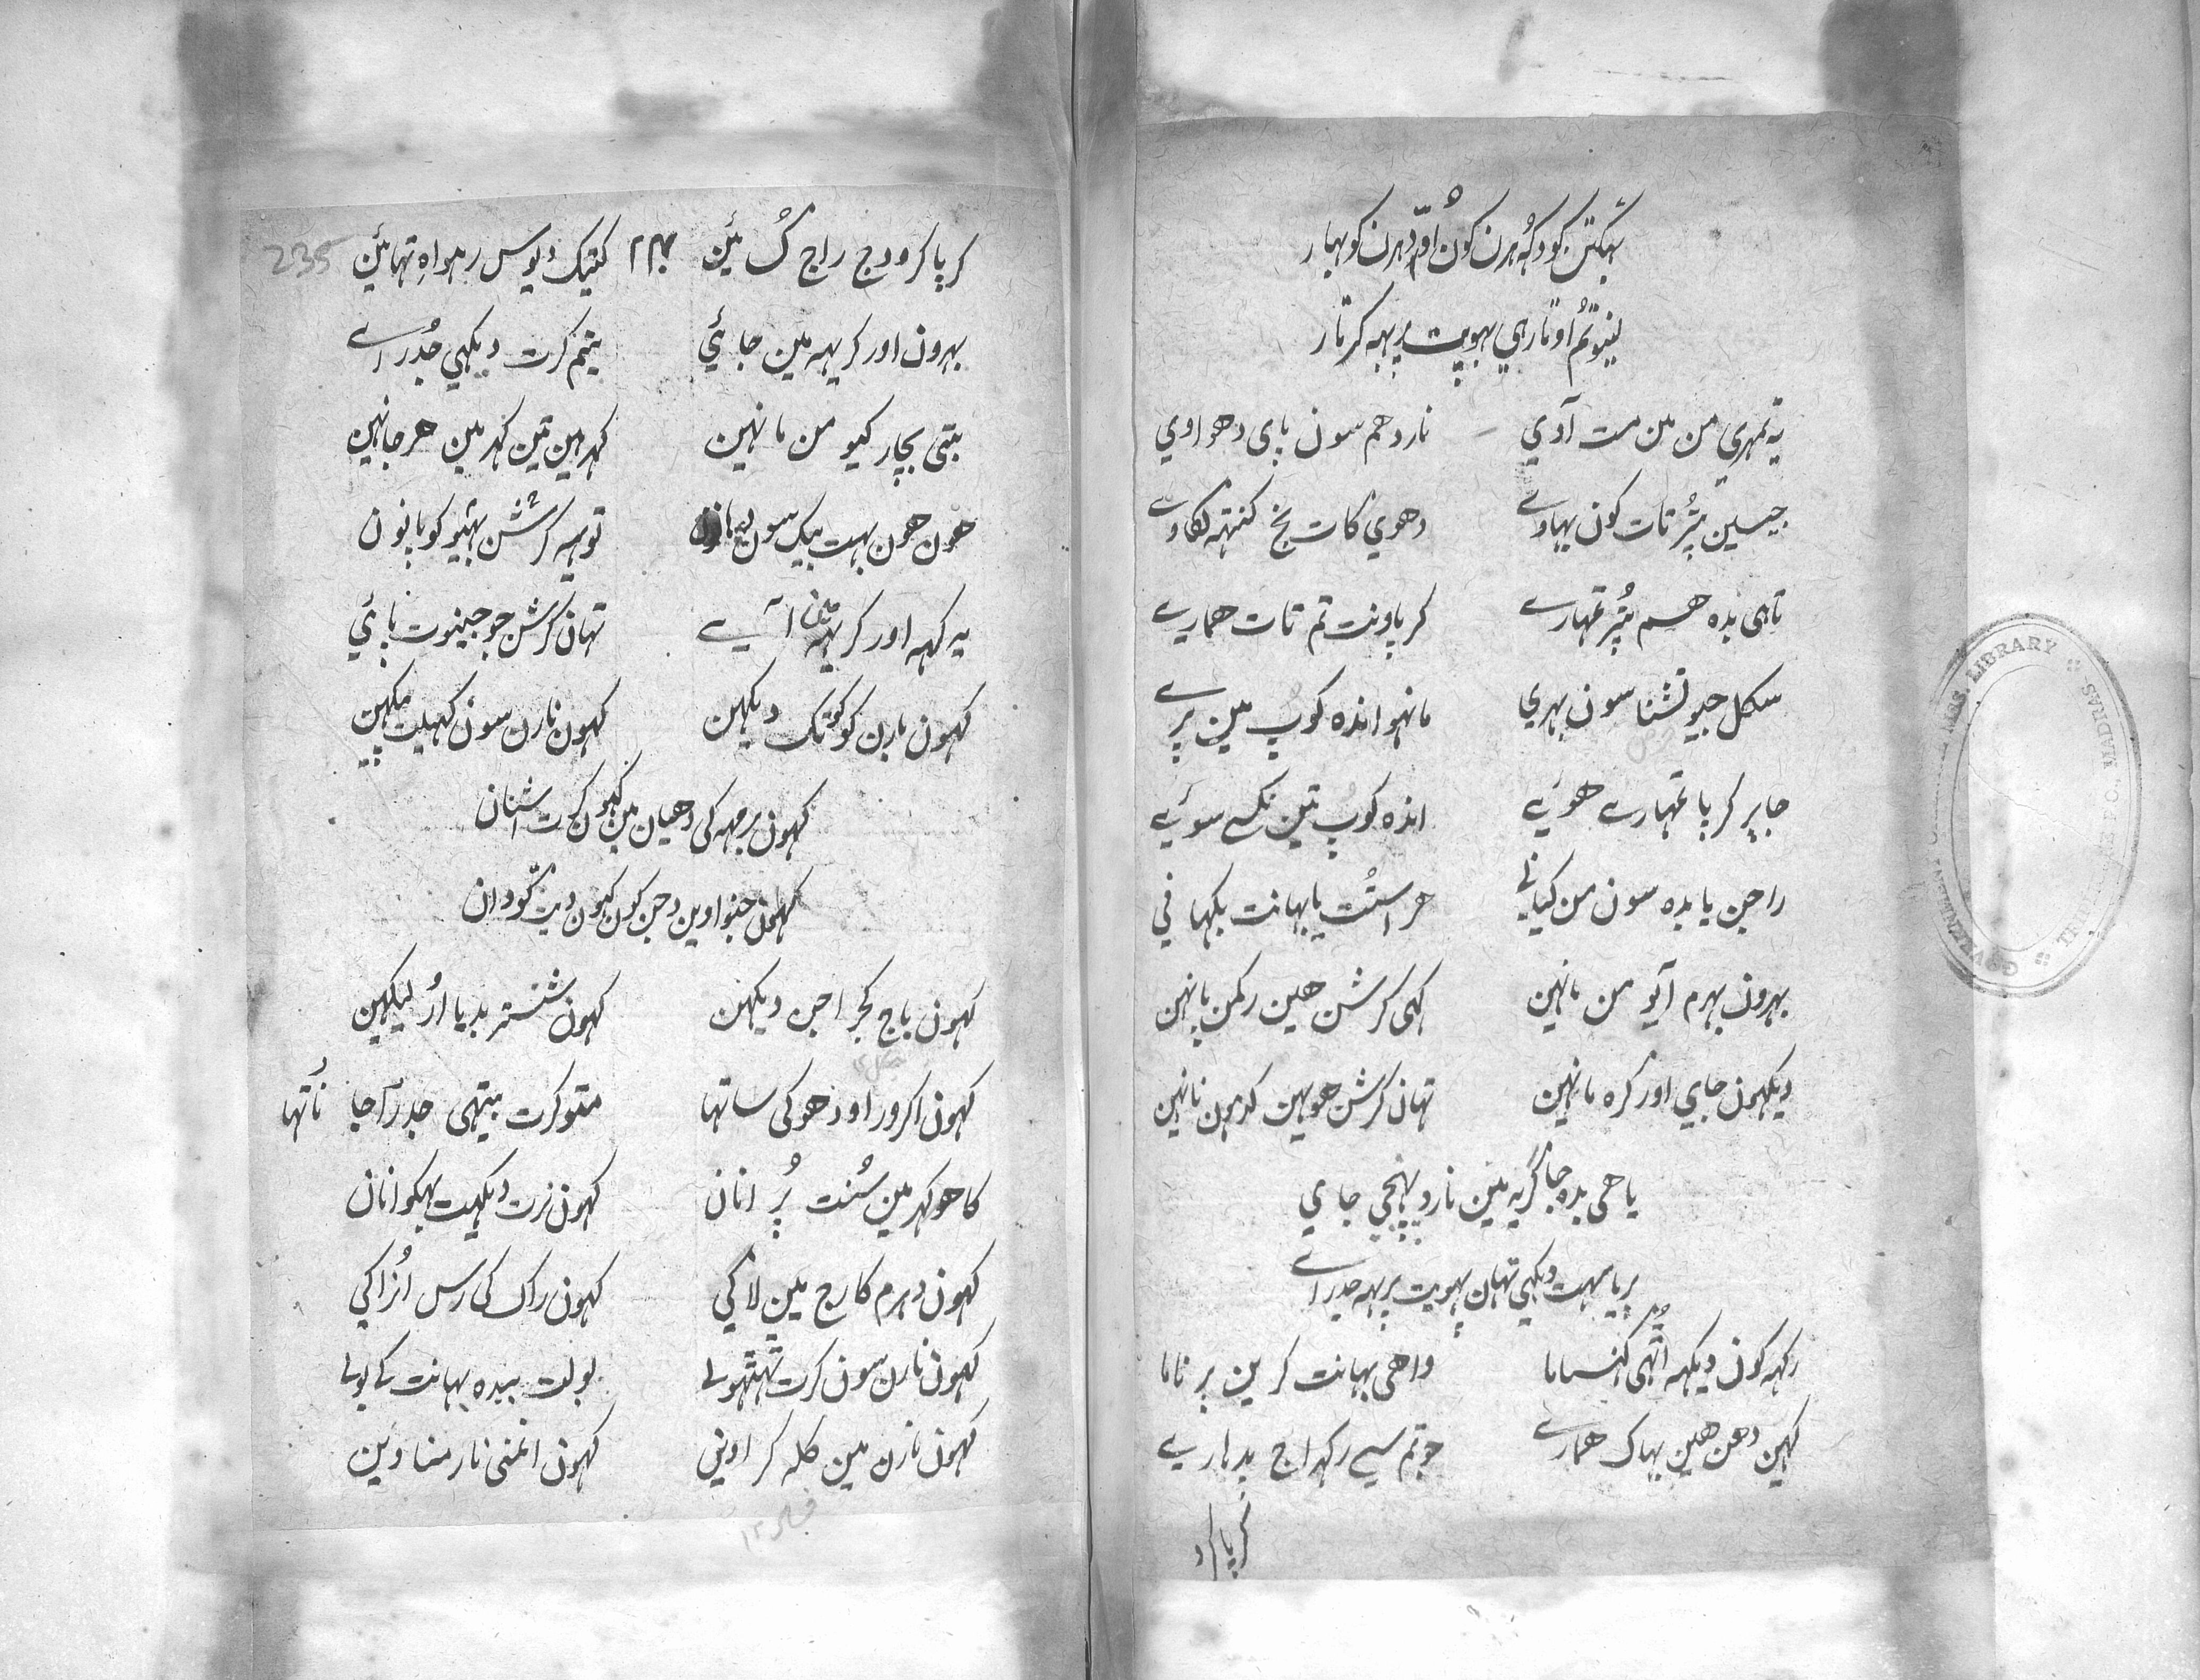 بهگتن کو دکهہ هرن کون اور دهرن کو بهار
لینو تم اوتار هي بهوپت پربهہ کرتار
یہ تمهري من مین مت آوي نارد هم سون پاي دهواوي
جیسین پتر تات کون بهاوے دهوي کات نج کنتهہ لگاوے
تاهی بده هم پتر تمهارے کرپاونت تم تات همارے
سکل جیو تشنا سون بهري مانهو انده کوپ مین پرے
جاپر کرپا تمهارے هوئے انده کوپ تین نکسے سوئے
راجن یا بده سون من گیاني هر استت یا بهانت بکهاني
بهرون بهرم آیو من مانهین کهی کرشن هین رکمن پانهین
دیکهون جاي اور گره مانهین تهان کرشن هوهین کدهون نانهین
یاهی بده جا گریہ مین نارد پهنچي جاي
پریا سهت دیکهي تهان بهوپت پربهہ جدراے
رکهہ کون دیکهہ اتهی گهنساما واهی بهانت کرین پرناما
کهین دهن هین بهاگ همارے جو تم سے رکهہ اج پدهارے
کرپا کرو
کرپا کرو دج راج گسائین ۲۳۴ کتیک دیوس رهو اہ تهائین 235
بهرون اور گریہہ مین جائي بتم کرت دیکهي جدراے
بتی بچار کیو من مانهین گهر مین تین گهر مین هر جانهین
هون هون بهت بیگ سون دهانون توهہ کرشن بهیو کو پانون
یہ کهہ اور گریہہ مین آے تهان کرشن جو جینوت پائي
کهون نارن کو کوتک دیکهن کهون نارن سون کهیلت پیکهن
کهون برمهہ کی دهیان مین کهون کرت اشنان
کهون جنواوین دجن کون کهون دیت گودان
کهون باج کجر اجن دیکهن کهون شستر بدیا ار لیکهن
کهون اکرور اودهو کی ساتها متو کرت بیتهی جدر آجا ناتها
کاهو گهر مین سنت پرانان کهون نرت دیکهت بهگوانان
کهون دهرم کارج مین لاگي کهون راگ کی رس انراگي
کهون نارن سون کرت تهتهولے بولت ببده بهانت کے بولے
کهون نارن مین کله کراوین کهون انمنی نار مناوئین